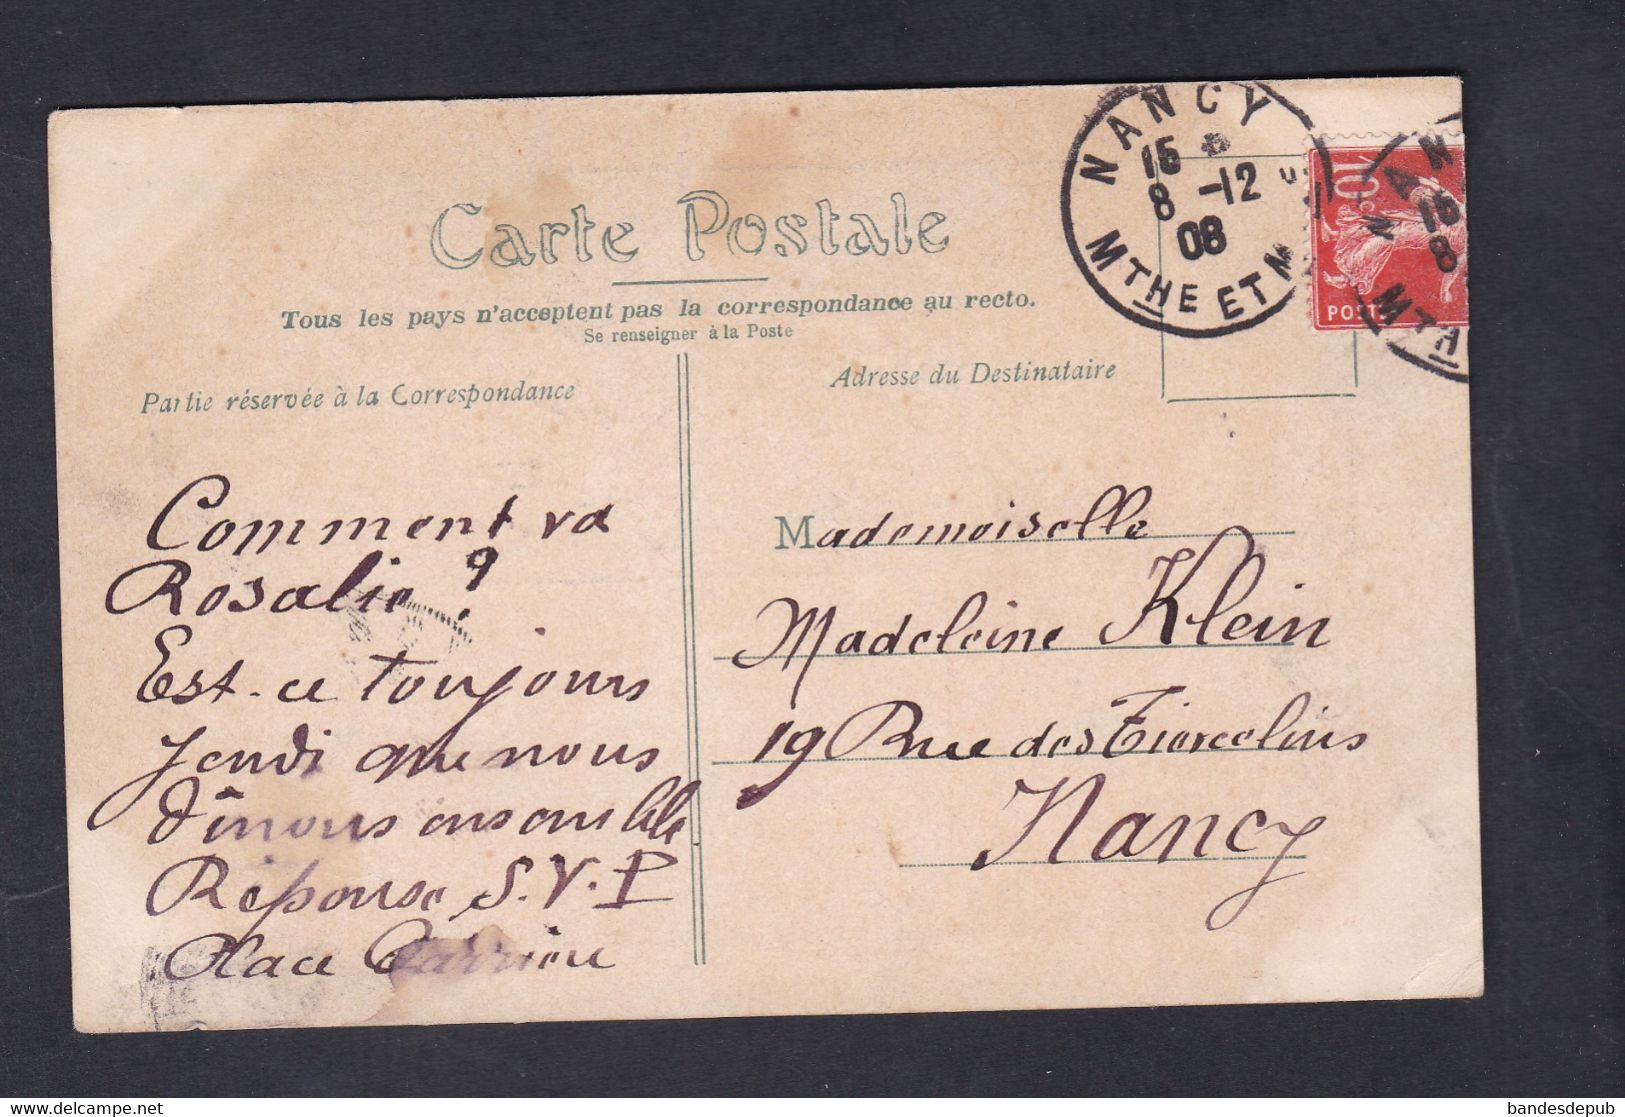 Carte Postale
Tous les pays n'acceptent pas la correspondance au recto.
Se renseigner à la Poste
Partie réservée à la Correspondance
Adresse du Destinataire
NANCY
15
8 -12
08
MTHE ET M
10c
POSTE
NAN
15
8
MTH
Comment va
Rosalie ?
Est-ce toujours
Jeudi que nous
dînons ensemble
Réponse S.V.P
Place Carrière
Mademoiselle
Madeleine Klein
19 Rue des Tiercelins
Nancy
delcampe.net
bandesdepub